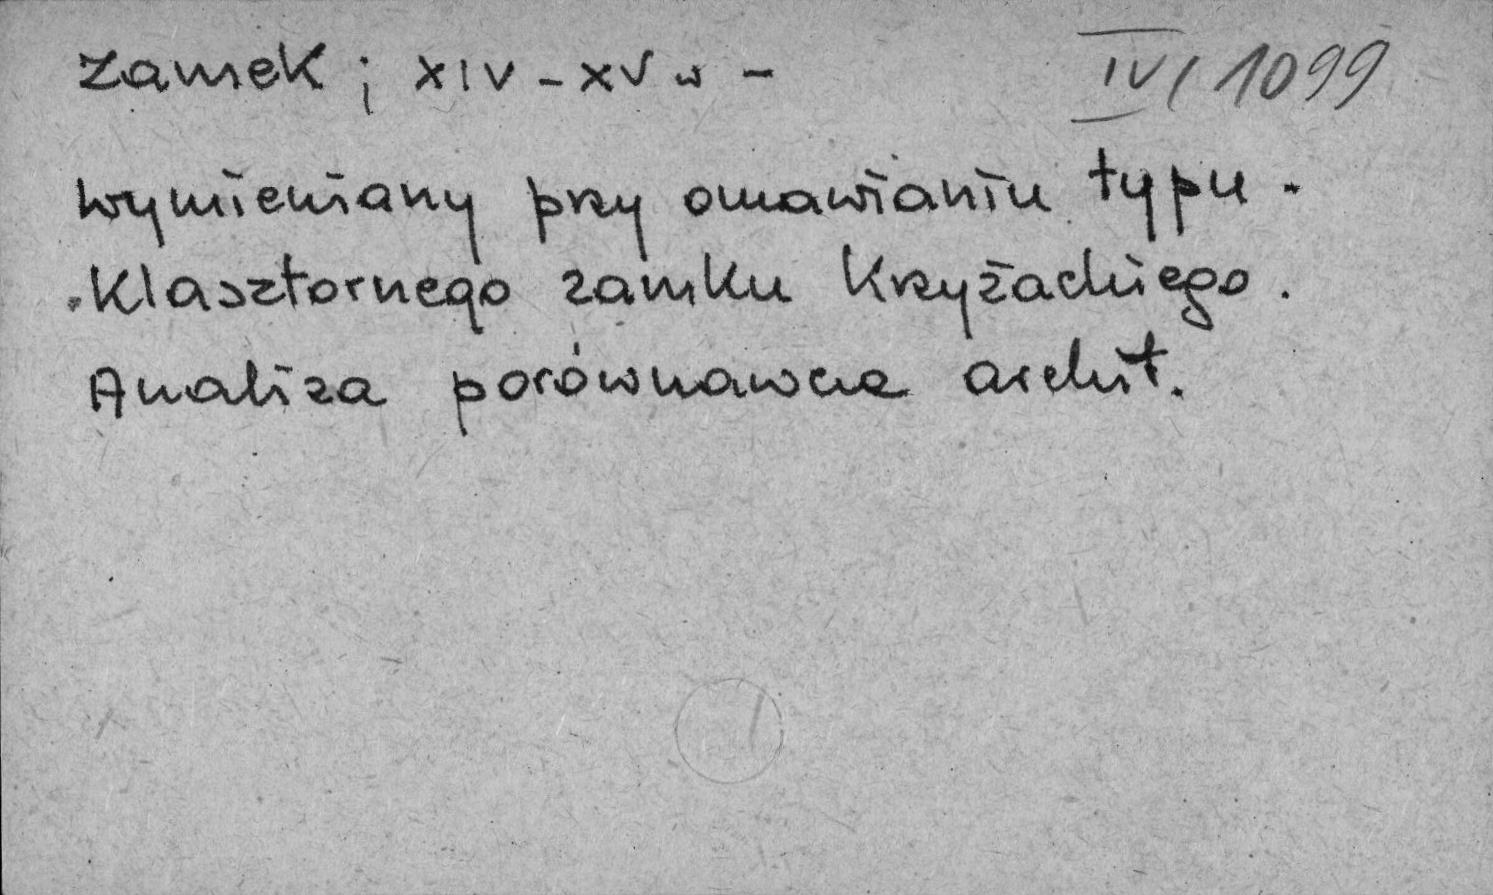 Zamek ; XIV - XV w - IV/1099
wymieniany przy omawianiu typu.
Klasztornego zamku Krzyżackiego.
Analiza porównawcza archit.